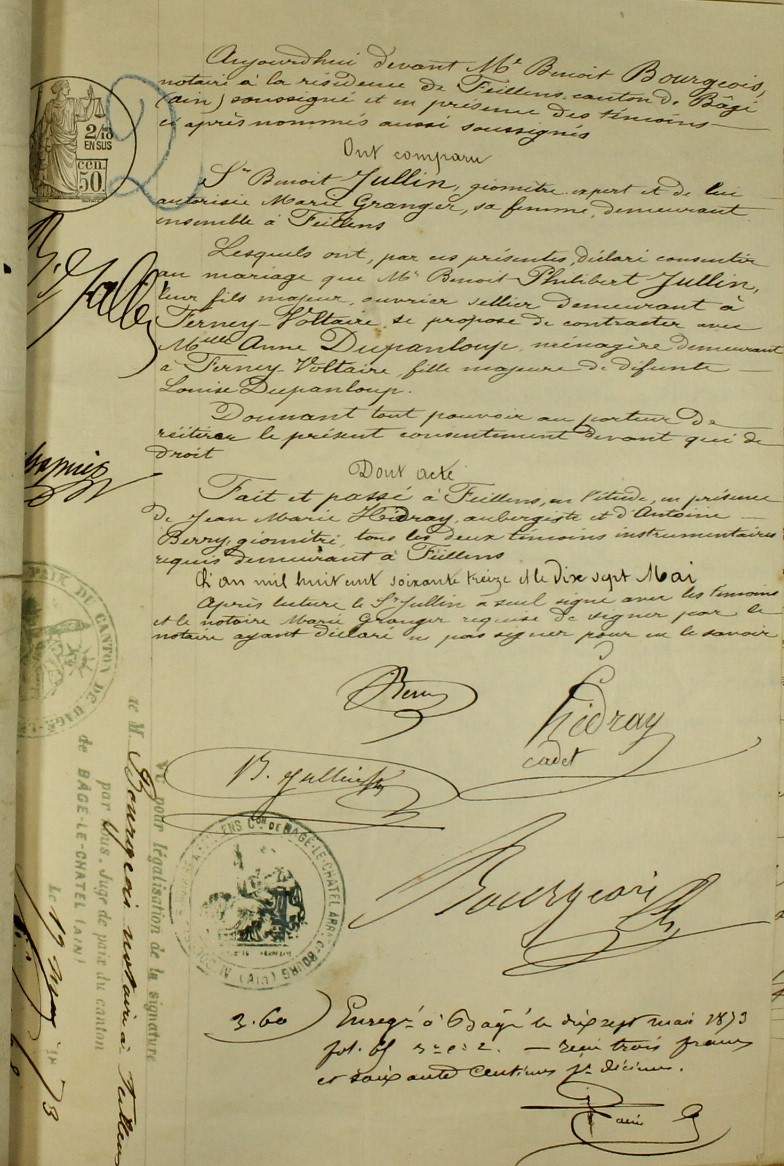 Aujourdhui devant Me Benoit Bourgeois,
notaire à la résidence de Feillens, canton de Bâgé
(ain) soussigné et en présence des témoins
ci après nommés aussi soussignés
Ont comparu
Sr Benoit Jullin, géomètre expert et de lui
autorisée Marie Granger, sa femme, demeurant
ensemble à Feillens
Lesquels ont, par ces présentes, déclaré consentir
au mariage que Mr Benoit Philibert Jullin,
leur fils majeur, ouvrier sellier demeurant à
Ferney-Voltaire se propose de contracter avec
Melle Anne Dupanloup, ménagère demeurant
à Ferney-Voltaire, fille majeure de défunte
Louise Dupanloup.
Donnant tout pouvoir au porteur de
réitérer le présent consentement devant qui de
droit
Dont acte
Fait et passé à Feillens, en l'étude, en présence
de Jean Marie Hédray, aubergiste et d'Antoine
Berry, géomètre, tous les deux témoins instrumentaires
requis demeurant à Feillens
L'an mil huit cent soixante treize et le dix sept Mai
Après lecture le Sr Jullin a seul signé avec les témoins
et le notaire Marie Granger requise de signer par le
notaire ayant déclaré ne pas signer pour ne le savoir
2/10
EN SUS
50 cen.
Berry
Hédray
cadet
B. Jullin
Bourgeois
Vu pour légalisation de la signature
de M. Bourgeois notaire à Feillens
par nous, Juge de paix du canton
de BÂGÉ-LE-CHATEL (AIN)
Le 17 mai 1873
PAIX DU CANTON DE BAGÉ-L
ENS Con DE BAGÉ-LE-CHATEL ARRt DE BOURG (AIN)
3.60
Enregé à Bâgé le dix sept mai 1873
fol. 65 re c. 2. — reçu trois francs
et soixante centimes pr décimes.